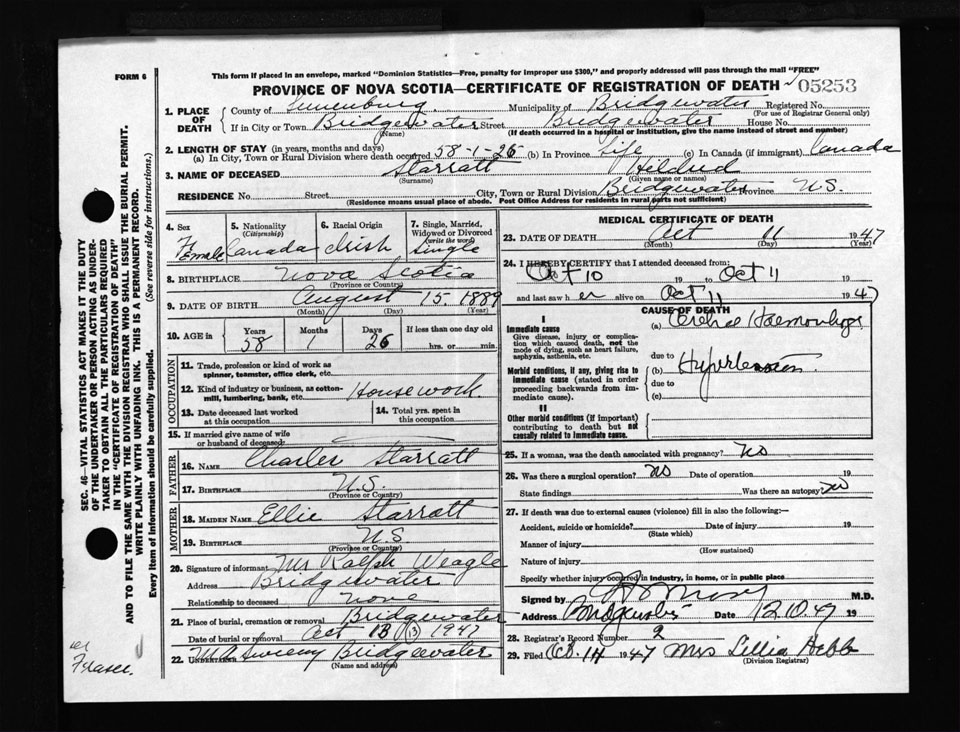 FORM 6
This form if placed in an envelope, marked "Dominion Statistics—Free, penalty for improper use $300," and properly addressed will pass through the mail "FREE"
PROVINCE OF NOVA SCOTIA—CERTIFICATE OF REGISTRATION OF DEATH 05253
1. PLACE OF DEATH
County of Lunenburg Municipality of Bridgewater Registered No.
(For use of Registrar General only)
If in City or Town Bridgewater Street Bridgewater House No.
(Name) (If death occurred in a hospital or institution, give the name instead of street and number)
2. LENGTH OF STAY (in years, months and days)
(a) In City, Town or Rural Division where death occurred 58-1-26 (b) In Province Life (c) In Canada (if immigrant) Canada
3. NAME OF DECEASED Starratt Hildred
(Surname) (Given name or names)
RESIDENCE No. Street City, Town or Rural Division Bridgewater Province N.S.
(Residence means usual place of abode. Post Office Address for residents in rural parts not sufficient)
4. Sex Female
5. Nationality (Citizenship) Canada
6. Racial Origin Irish
7. Single, Married, Widowed or Divorced (write the word) Single
8. BIRTHPLACE Nova Scotia
(Province or Country)
9. DATE OF BIRTH August 15. 1889
(Month) (Day) (Year)
10. AGE in Years 58 Months 1 Days 26 If less than one day old hrs. or min.
OCCUPATION
11. Trade, profession or kind of work as spinner, teamster, office clerk, etc.
12. Kind of industry or business, as cotton-mill, lumbering, bank, etc. Housework.
13. Date deceased last worked at this occupation
14. Total yrs. spent in this occupation
15. If married give name of wife or husband of deceased
FATHER
16. NAME Charles Starratt
17. BIRTHPLACE N.S.
(Province or Country)
MOTHER
18. MAIDEN NAME Ellie Starratt
19. BIRTHPLACE N.S
(Province or Country)
20. Signature of informant Mr Ralph Weagle
Address Bridgewater
Relationship to deceased None
21. Place of burial, cremation or removal Bridgewater
Date of burial or removal Oct 13 (13) 1947
22. UNDERTAKER Sweeny Bridgewater
(Name and address)
MEDICAL CERTIFICATE OF DEATH
23. DATE OF DEATH Oct 11 1947
(Month) (Day) (Year)
24. I HEREBY CERTIFY that I attended deceased from:
Oct 10 19 to Oct 11 19
and last saw her alive on Oct 11 1947
CAUSE OF DEATH
I
Immediate cause
Give disease, injury or complication which caused death, not the mode of dying, such as heart failure, asphyxia, asthenia, etc.
(a) Cerebral Haemorrhage
due to
Morbid conditions, if any, giving rise to immediate cause (stated in order proceeding backwards from immediate cause).
(b) Hypertension
due to
(c)
II
Other morbid conditions (if important) contributing to death but not causally related to immediate cause.
25. If a woman, was the death associated with pregnancy? No
26. Was there a surgical operation? No Date of operation 19
State findings Was there an autopsy? No
27. If death was due to external causes (violence) fill in also the following:—
Accident, suicide or homicide? Date of injury 19
(State which)
Manner of injury
(How sustained)
Nature of injury
Specify whether injury occurred in industry, in home, or in public place
Signed by M.D.
Address Date 12.10.47 19
28. Registrar's Record Number 2
29. Filed Oct. 14 1947 Mrs Lillia Hebb
(Division Registrar)
SEC. 46—VITAL STATISTICS ACT MAKES IT THE DUTY
OF THE UNDERTAKER OR PERSON ACTING AS UNDER-
TAKER TO OBTAIN ALL THE PARTICULARS REQUIRED
IN THE "CERTIFICATE OF REGISTRATION OF DEATH"
AND TO FILE THE SAME WITH THE DIVISION REGISTRAR WHO SHALL ISSUE THE BURIAL PERMIT.
WRITE PLAINLY WITH UNFADING INK. THIS IS A PERMANENT RECORD.
Every item of information should be carefully supplied. (See reverse side for instructions.)
Fraser.